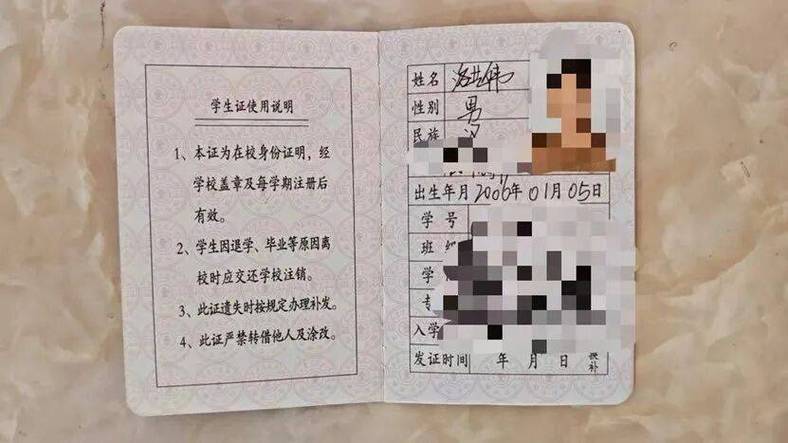 学生证使用说明
1、本证为在校身份证明，经
学校盖章及每学期注册后
有效。
2、学生因退学、毕业等原因离
校时应交还学校注销。
3、此证遗失时按规定办理补发。
4、此证严禁转借他人及涂改。
姓名
性别 男
民族 汉
出生年月 2006年 01月 05日
学号
班
学
专
入学
发证时间 年 月 日 换补